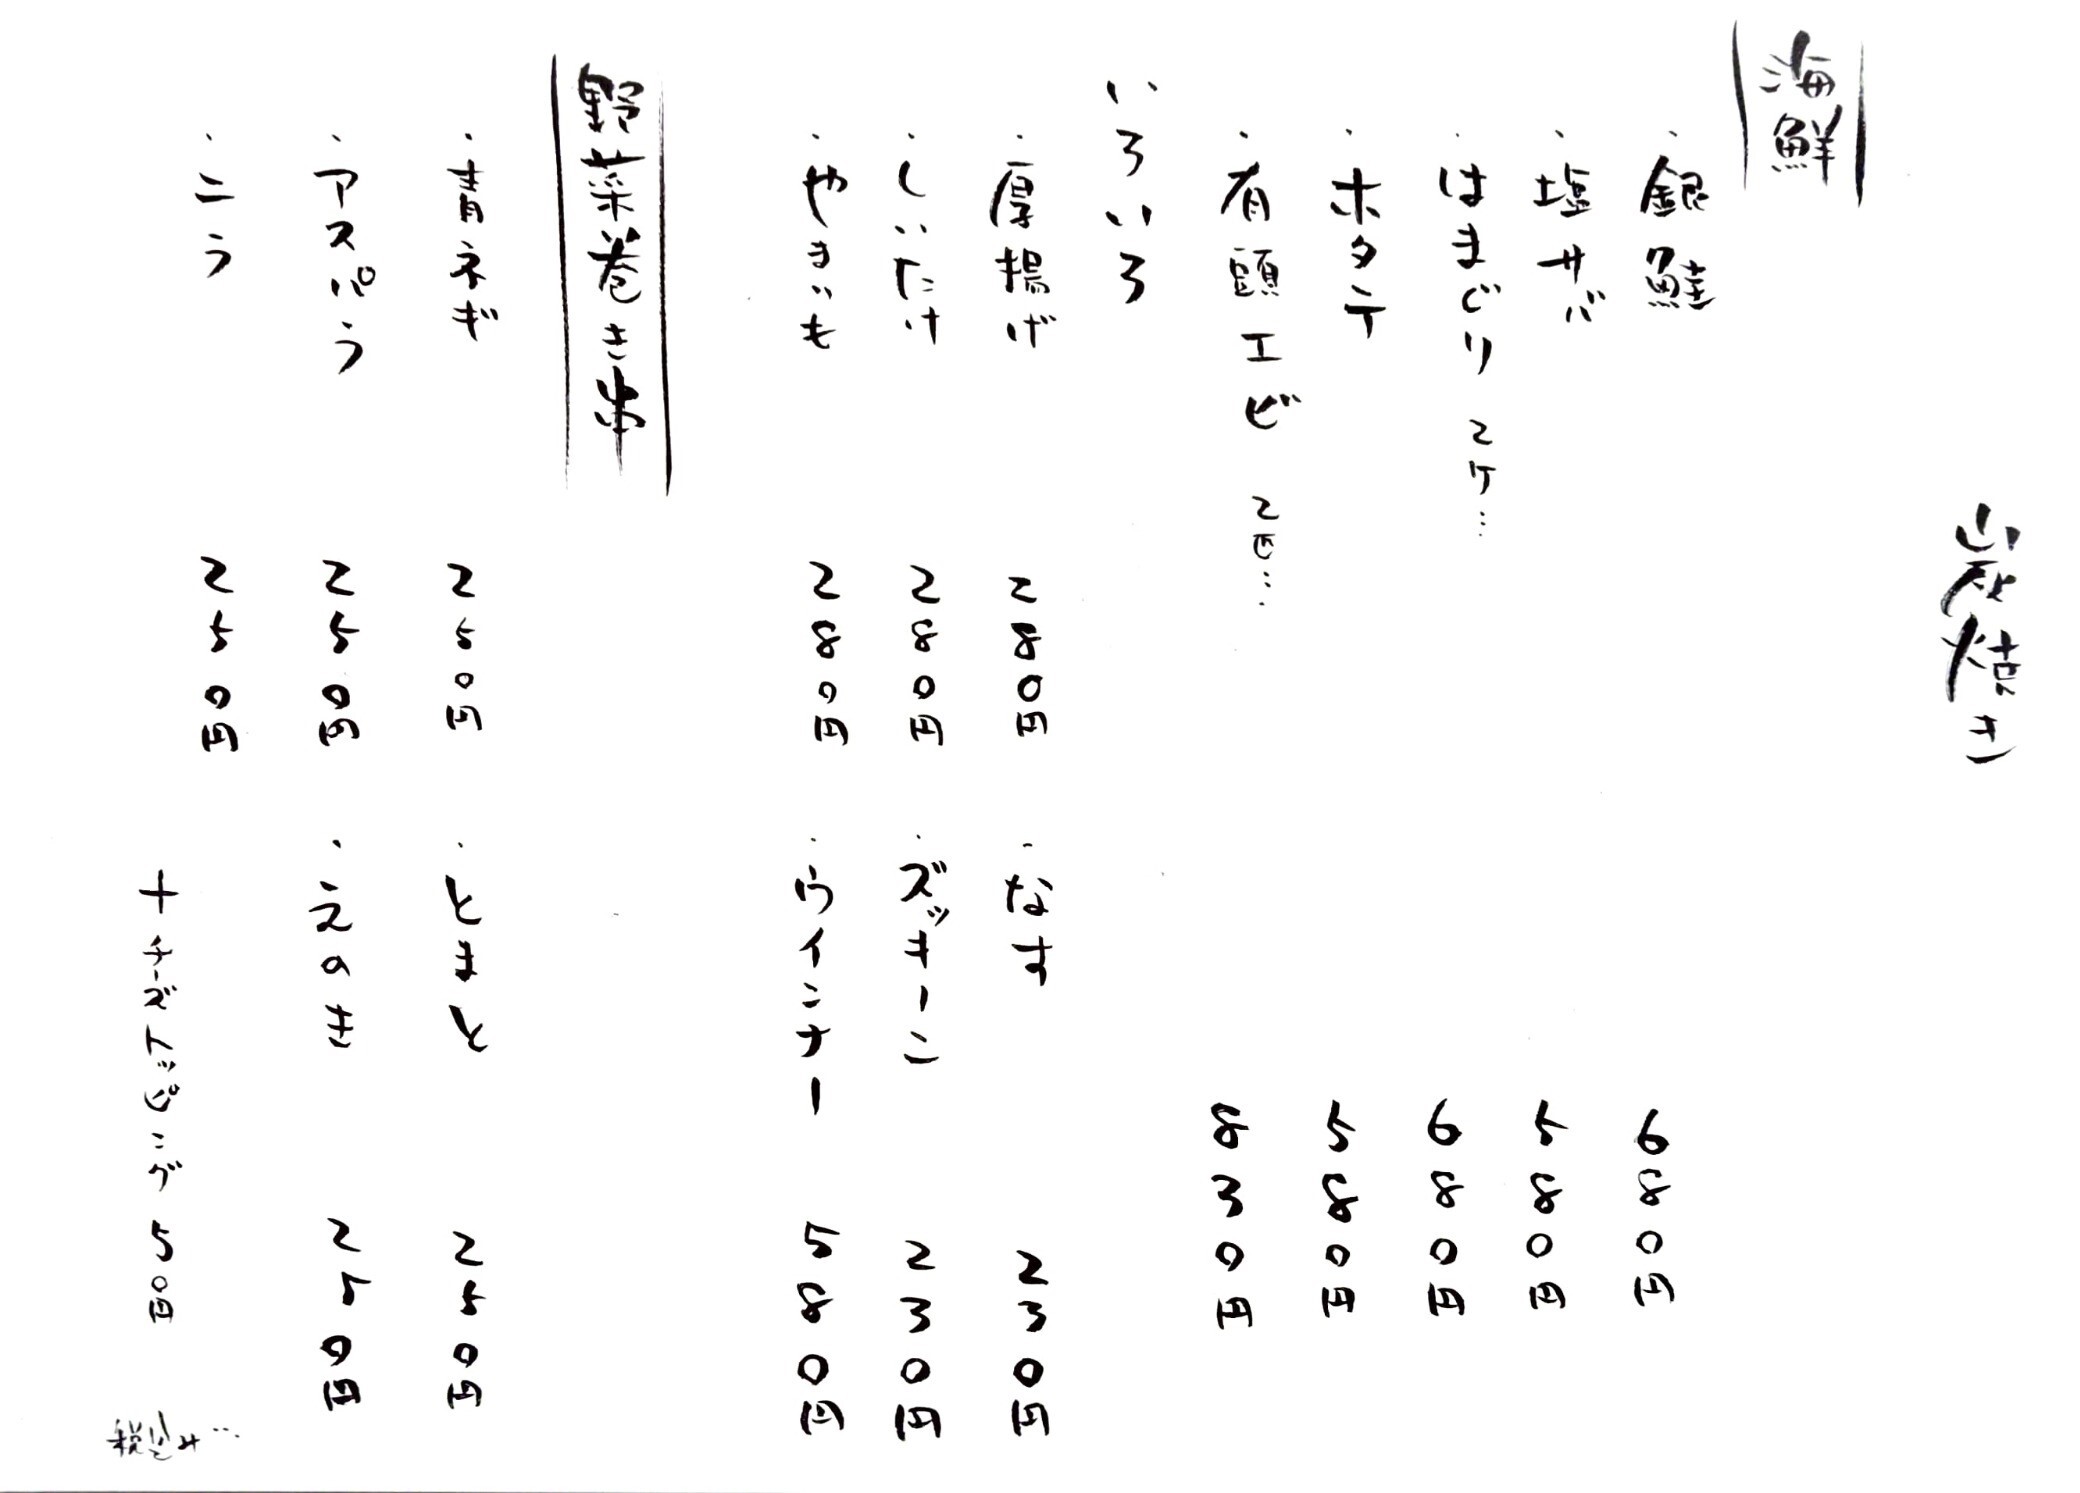 炭焼き
海鮮
・銀鮭 680円
・塩サバ 580円
・はまぐり 2ケ… 680円
・ホタテ 580円
・有頭エビ 2匹… 830円
いろいろ
・厚揚げ 280円 ・なす 230円
・しいたけ 280円 ・ズッキーニ 230円
・やまいも 280円 ・ウインナー 580円
野菜巻き串
・青ネギ 250円 ・とまと 250円
・アスパラ 250円 ・えのき 250円
・ニラ 250円
+チーズトッピング 50円
税込み…